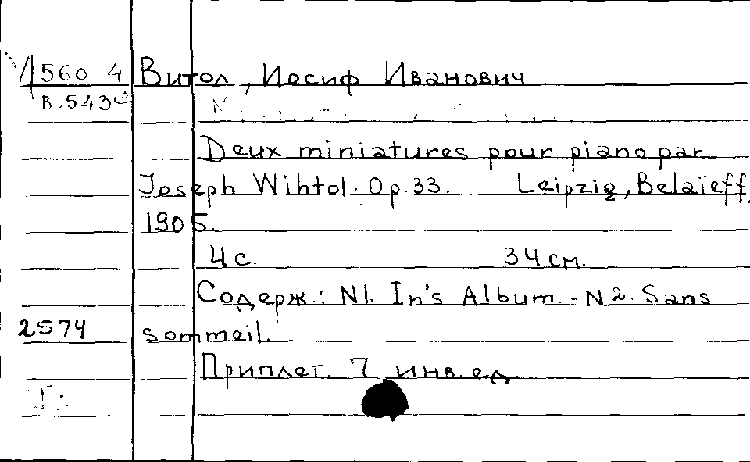 1560 4
В.543
Витол, Иосиф Иванович
Deux miniatures pour piano par
Joseph Wihtol. Op. 33. Leipzig, Belaïeff,
1905.
4 с. 34 см.
Содерж.: N1. In's Album. - N2. Sans
sommeil.
2574
Приплет. 7 инв. ед